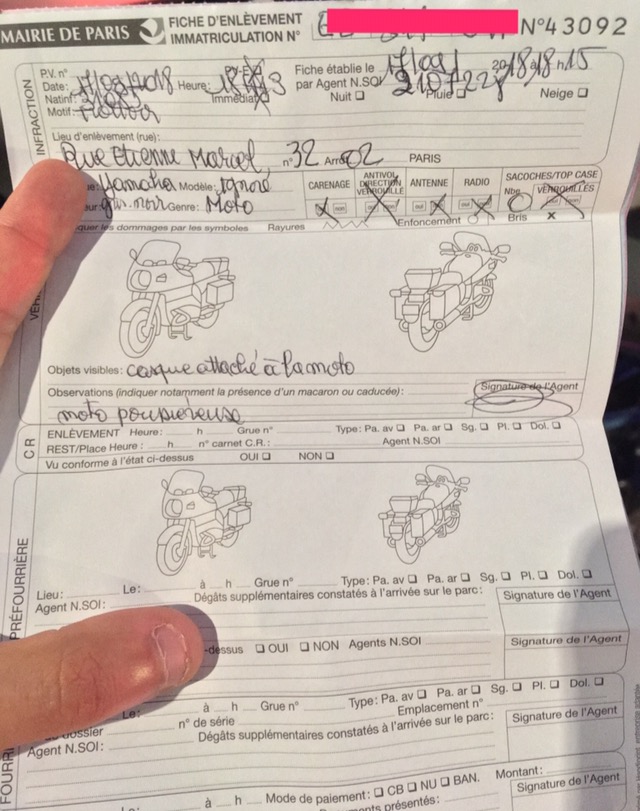 MAIRIE DE PARIS FICHE D'ENLÈVEMENT IMMATRICULATION N° N°43092
INFRACTION
P.V. n°
Date: Heure: Immédiat Fiche établie le
par Agent N.SOI
Natinf: Nuit ☐ Pluie ☐ Neige ☐
Motif:
Lieu d'enlèvement (rue):
Rue Etienne Marcel n° 32 Arr 02 PARIS
Yamaha Modèle: Ignoré
Genre: Moto
CARENAGE ANTIVOL DIRECTION VERROUILLÉ ANTENNE RADIO SACOCHES/TOP CASE
Nbe VERROUILLÉS
quer les dommages par les symboles Rayures Enfoncement Bris x
Objets visibles: casque attaché à la moto
Observations (indiquer notamment la présence d'un macaron ou caducée): Signature de l'Agent
moto poussiereuse
CR
ENLÈVEMENT Heure: h Grue n° Type: Pa. av ☐ Pa. ar ☐ Sg. ☐ Pl. ☐ Dol. ☐
REST/Place Heure: h n° carnet C.R.: Agent N.SOI
Vu conforme à l'état ci-dessus OUI ☐ NON ☐
PRÉFOURRIÈRE
Lieu: Le: à h Grue n° Type: Pa. av ☐ Pa. ar ☐ Sg. ☐ Pl. ☐ Dol. ☐
Agent N.SOI: Dégâts supplémentaires constatés à l'arrivée sur le parc: Signature de l'Agent
-dessus ☐ OUI ☐ NON Agents N.SOI Signature de l'Agent
FOURRI
Le: à h Grue n° Type: Pa. av ☐ Pa ar ☐ Sg. ☐ Pl. ☐ Dol. ☐
dossier n° de série Emplacement n°
Agent N.SOI: Dégâts supplémentaires constatés à l'arrivée sur le parc: Signature de l'Agent
à h Mode de paiement: ☐ CB ☐ NU ☐ BAN. Montant:
présentés: Signature de l'Agent